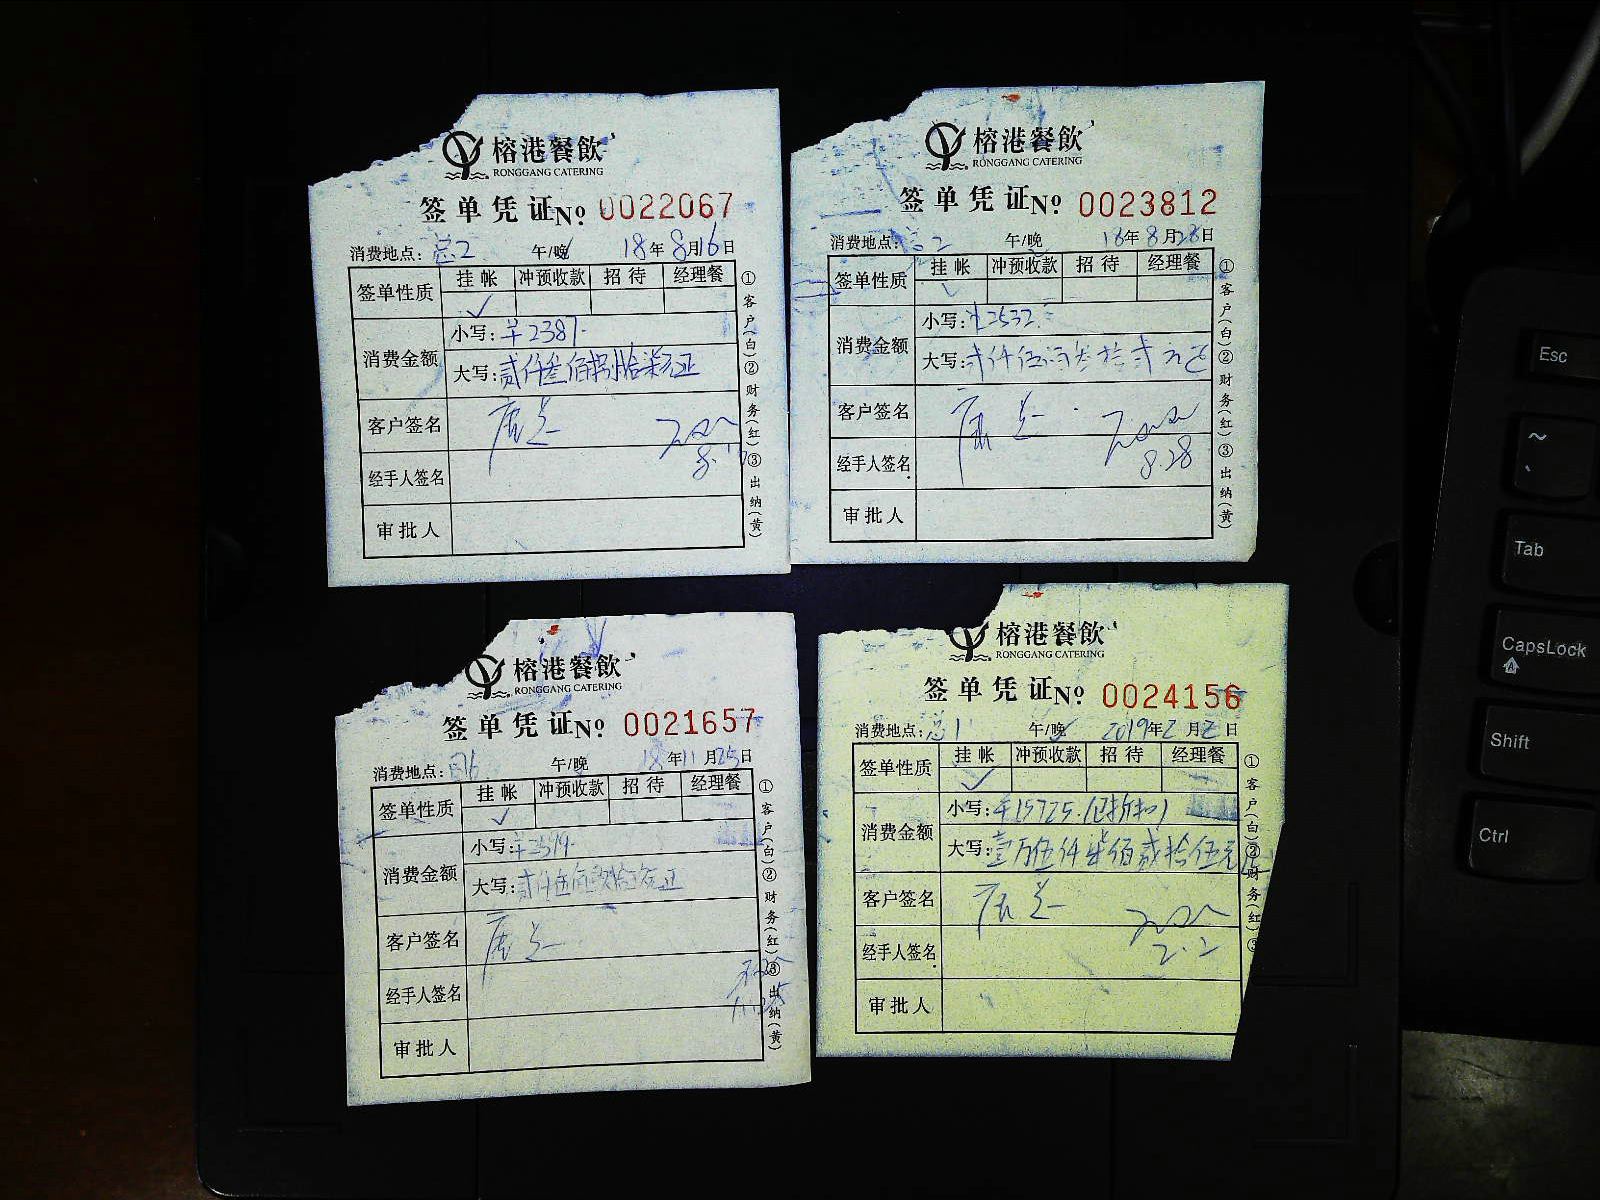 榕港餐飲
RONGGANG CATERING
签单凭证 No 0022067
消费地点: 总2 午/晚 18年8月16日
签单性质 挂帐 冲预收款 招待 经理餐
✓
消费金额 小写: ¥2387.
大写: 贰仟叁佰捌拾柒元正
客户签名 唐总
8.16
经手人签名
审批人
①客户(白)②财务(红)③出纳(黄)
榕港餐飲
RONGGANG CATERING
签单凭证 No 0023812
消费地点: 总2 午/晚 18年8月28日
签单性质 挂帐 冲预收款 招待 经理餐
✓
消费金额 小写: ¥2532.
大写: 贰仟伍佰叁拾贰元正
客户签名 唐总
经手人签名 8.28
审批人
①客户(白)②财务(红)③出纳(黄)
榕港餐飲
RONGGANG CATERING
签单凭证 No 0021657
消费地点: 午/晚 18年11月25日
签单性质 挂帐 冲预收款 招待 经理餐
✓
消费金额 小写:
大写: 贰仟伍佰
客户签名 唐总
经手人签名 11.25
审批人
①客户(白)②财务(红)③出纳(黄)
榕港餐飲
RONGGANG CATERING
签单凭证 No 0024156
消费地点: 总1 午/晚 2019年2月2日
签单性质 挂帐 冲预收款 招待 经理餐
✓
消费金额 小写: ¥15725.(已折扣)
大写: 壹万伍仟柒佰贰拾伍元正
客户签名 唐总
经手人签名 2.2
审批人
①客户(白)②财务(红)③
Esc
~
Tab
CapsLock
Shift
Ctrl